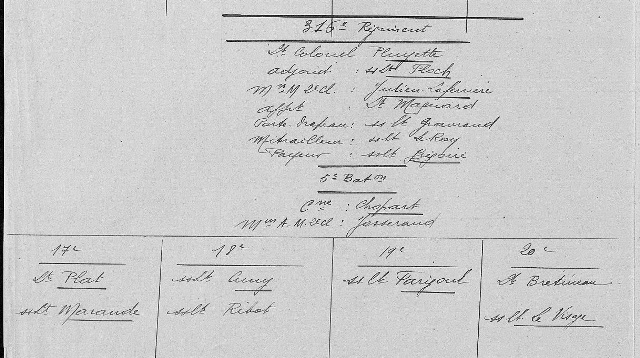 316e Régiment
Lt Colonel Pluyette
adjoint : s/lt Floch
Mn M 2e cl : Julien-Laferrière
appt Lt Magnard
Porte drapeau : ss lt Gramand
Mitrailleur : ss lt Le Roy
Payeur : ss lt
5e Baton
Cne : Chopart
Mn A. M. 2e cl : Josserand
17e 18e 19e 20e
Lt Plat ss lt Cuny ss lt Farigoul Lt Bretineau
ss lt Marande ss lt Ribot ss lt Le Visge